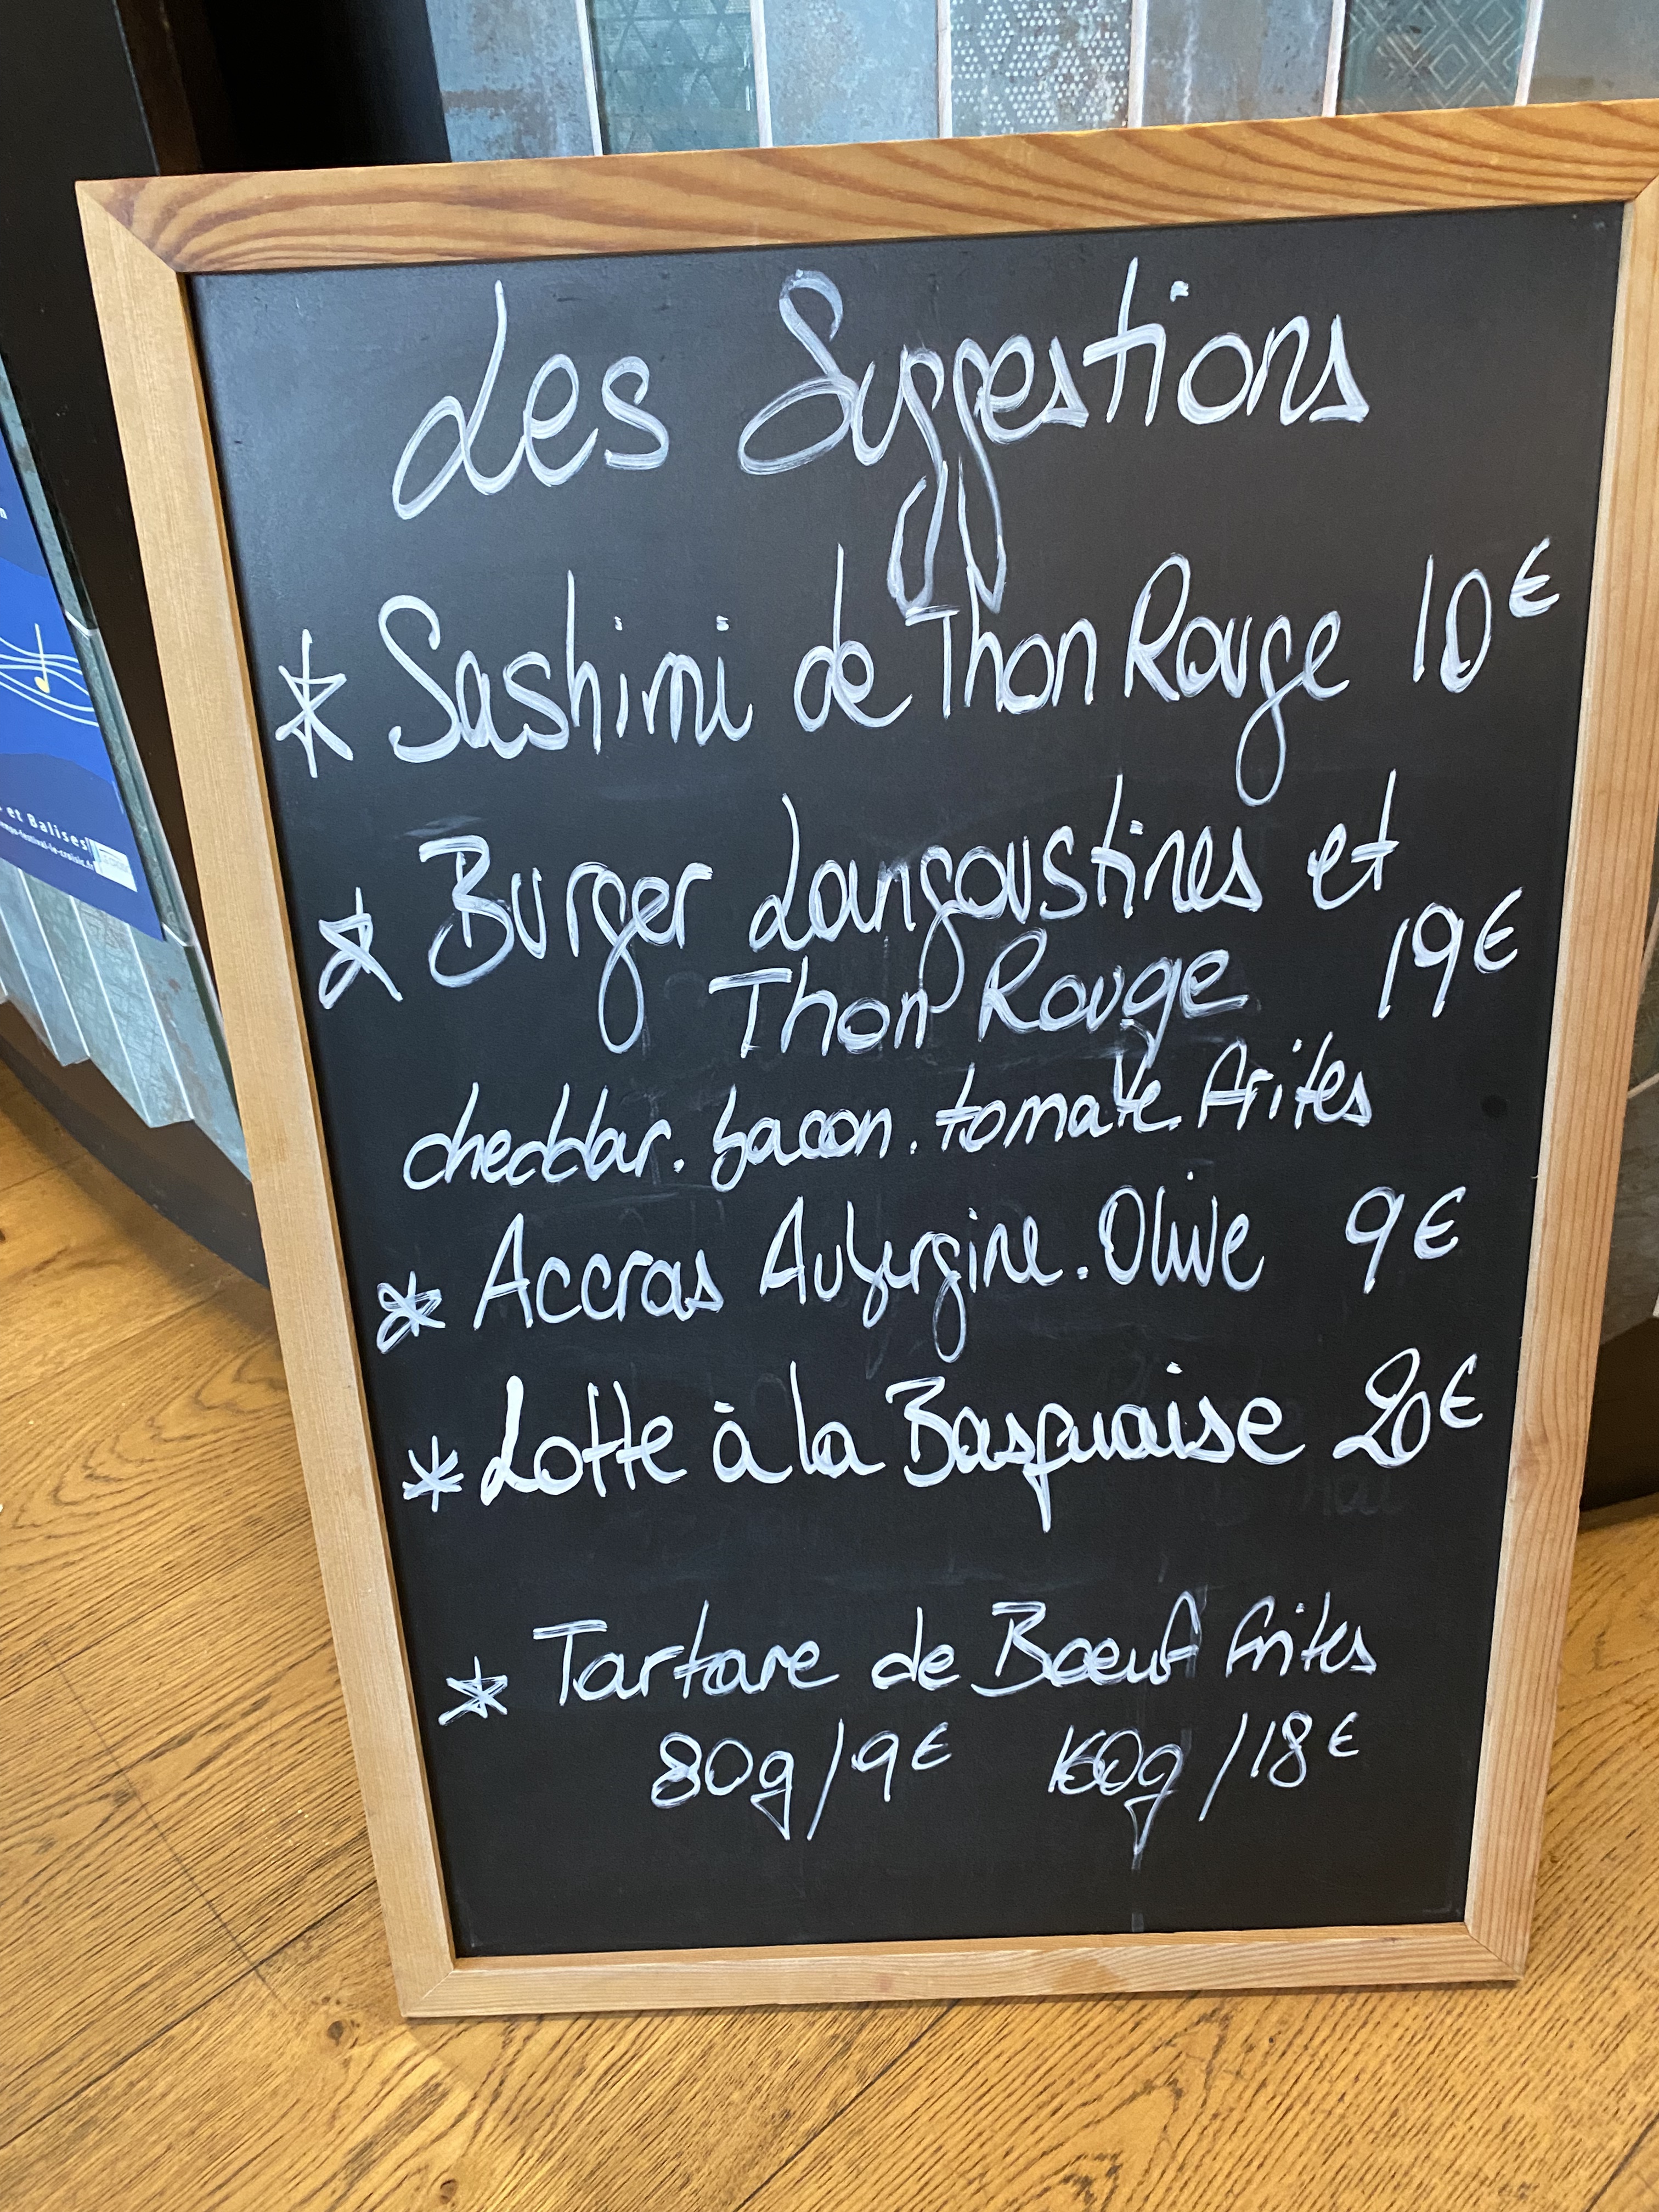 Les Suggestions
* Sashimi de Thon Rouge 10€
* Burger Langoustines et
Thon Rouge 19€
cheddar. bacon. tomate. frites
* Accras Aubergine. Olive 9€
* Lotte à la Basquaise 20€
* Tartare de Bœuf frites
80g/9€ 160g/18€
et Balises
festival-le-croisic.fr